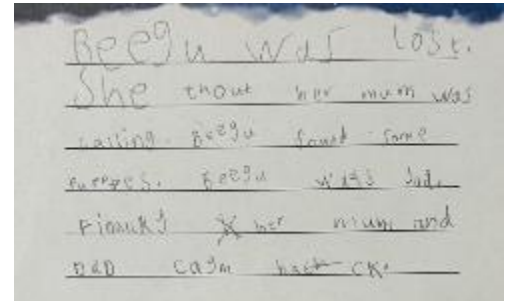 Beegu was lost.
She thout her mum was
calling Beegu found some
Beegu was sad.
her mum and
DaD cagm back